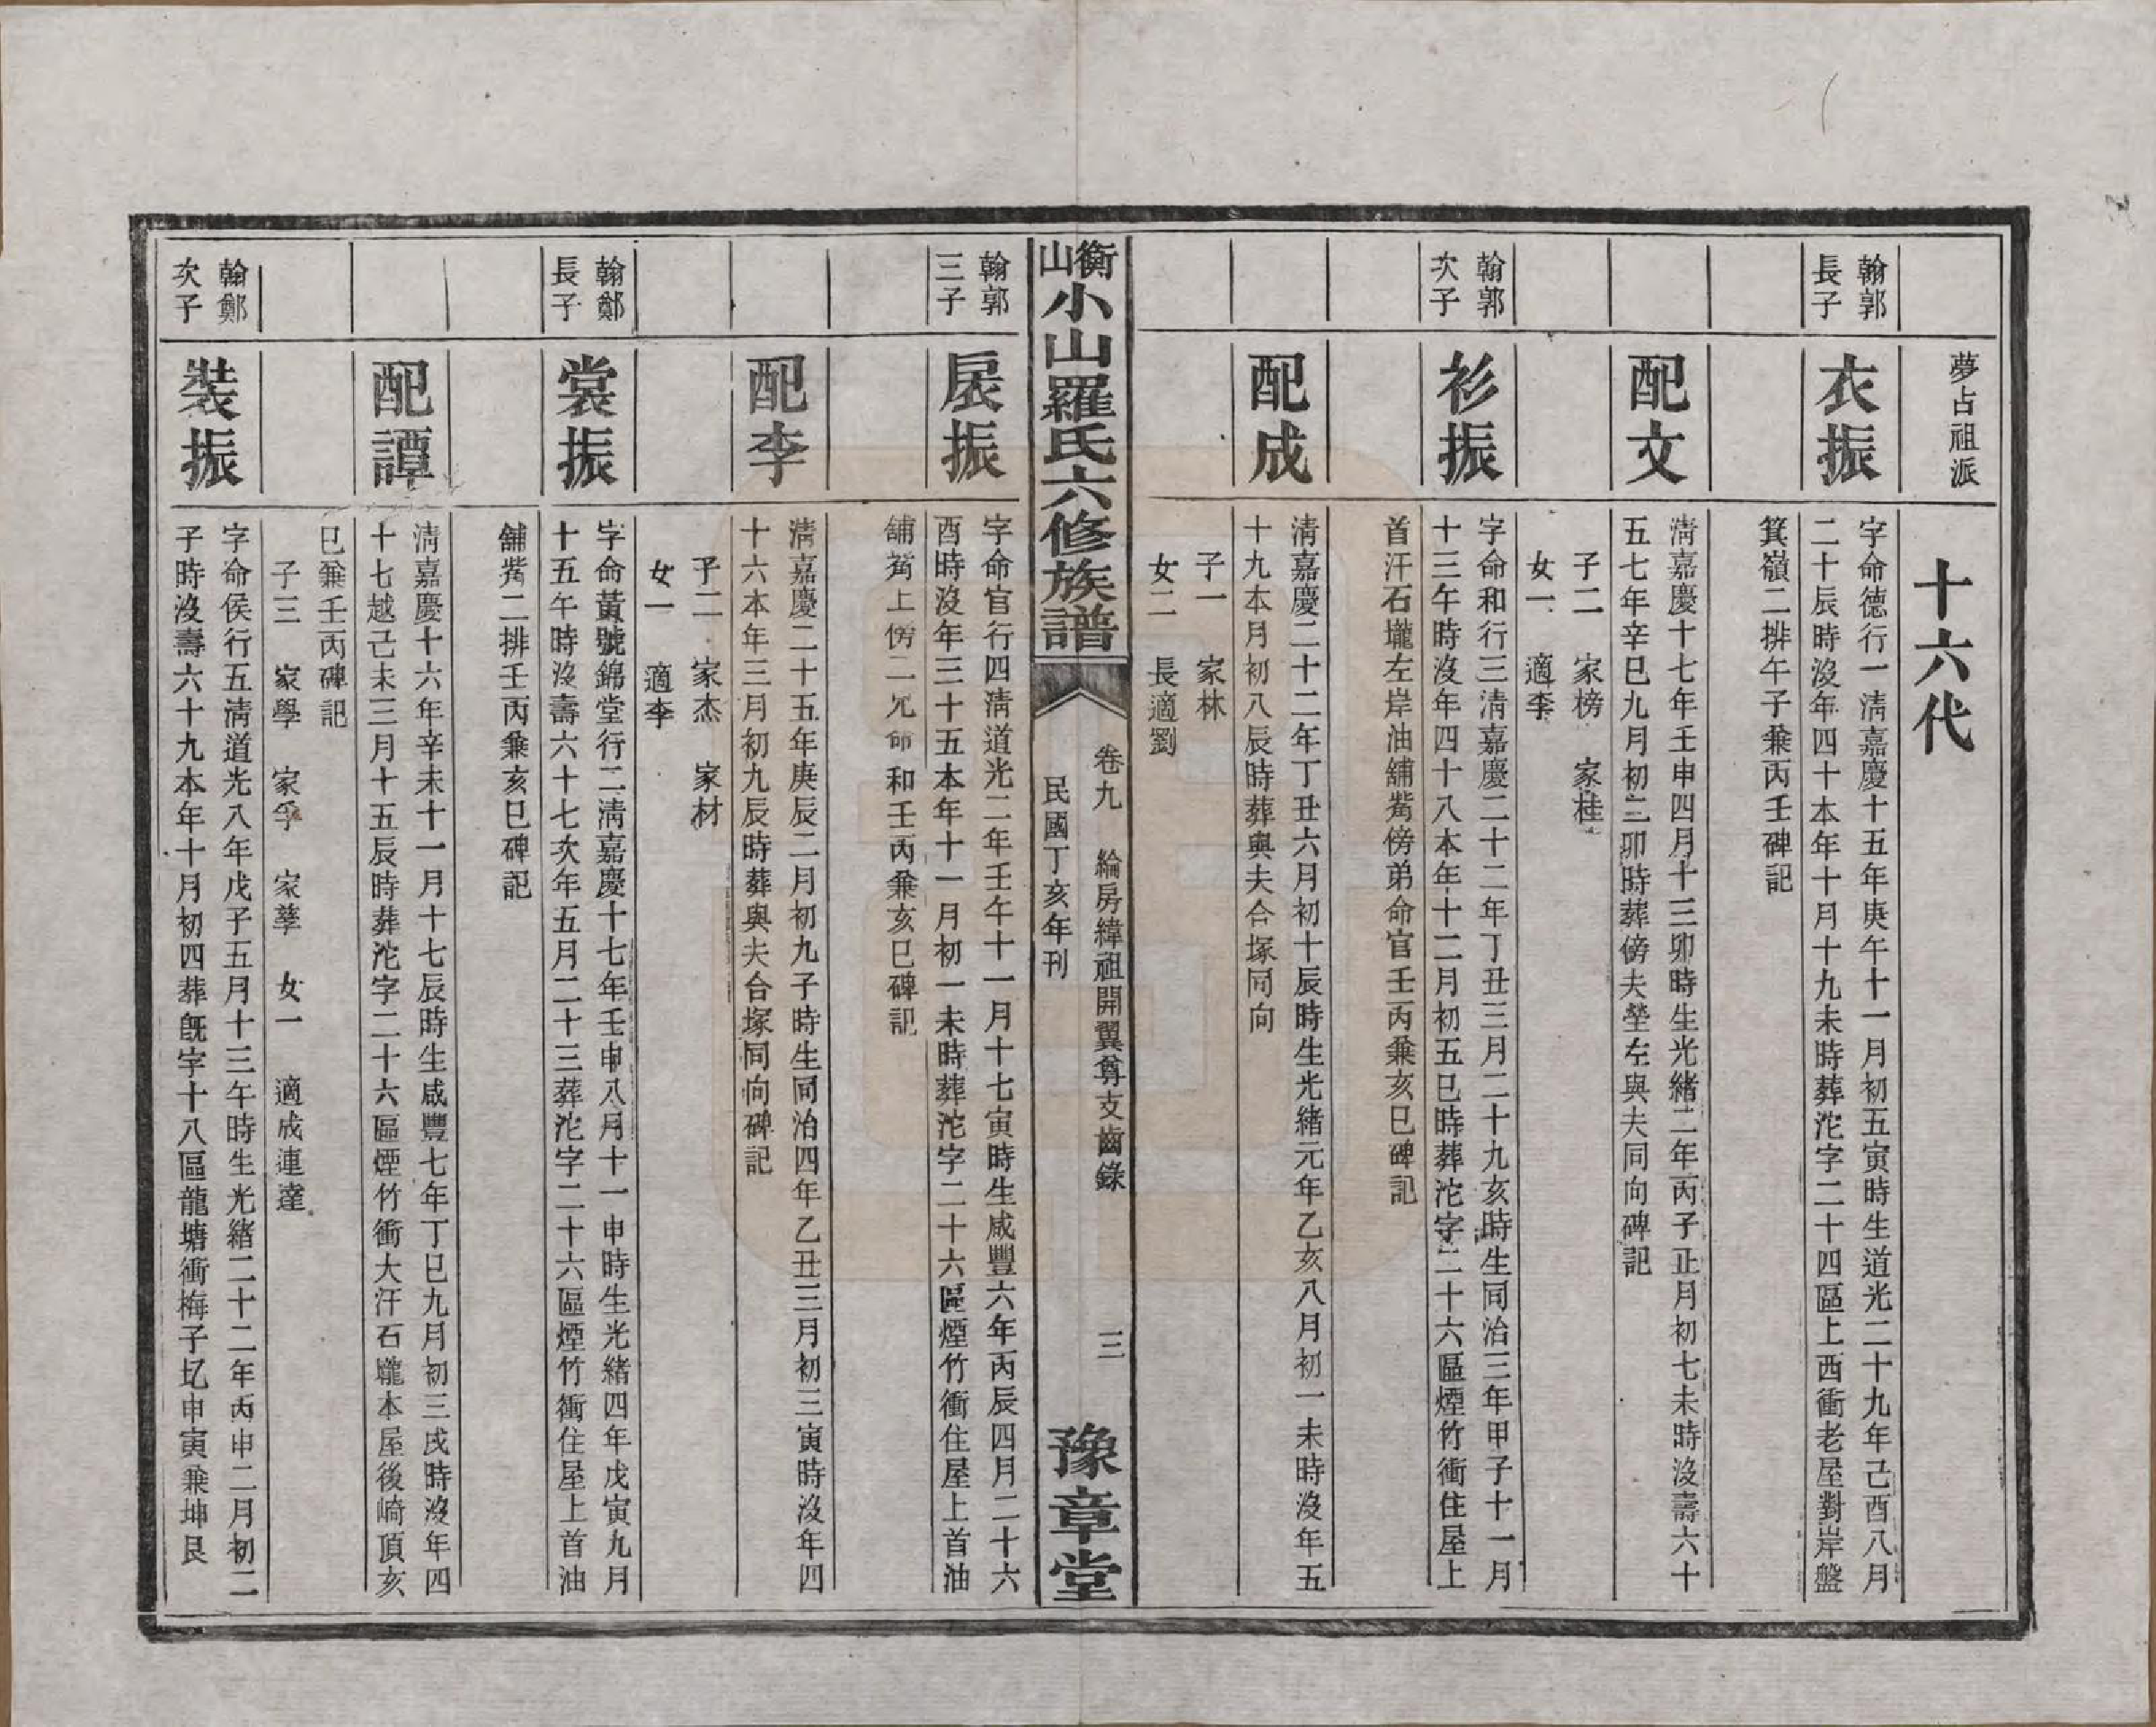 夢占祖派
十六代
翰郭
長子
衣振
字命德行一清嘉慶十五年庚午十一月初五寅時生道光二十九年己酉八月
二十辰時沒年四十本年十月十九未時葬沱字二十四區上西衝老屋對岸盤
箕嶺二排午子兼丙壬碑記
配文
清嘉慶十七年壬申四月十三卯時生光緒二年丙子正月初七未時沒壽六十
五七年辛巳九月初三卯時葬傍夫塋左與夫同向碑記
子二 家榜 家桂
女一 適李
翰郭
次子
衫振
字命和行三清嘉慶二十二年丁丑三月二十九亥時生同治三年甲子十一月
十三午時沒年四十八本年十二月初五巳時葬沱字二十六區煙竹衝住屋上
首汗石壠左岸油舖觜傍弟命官壬丙兼亥巳碑記
配成
清嘉慶二十二年丁丑六月初十辰時生光緒元年乙亥八月初一未時沒年五
十九本月初八辰時葬與夫合塚同向
子一 家林
女二 長適劉
衡山
小山羅氏六修族譜
卷九 綸房緯祖開翼尊支齒錄 三
民國丁亥年刊
豫章堂
翰郭
三子
扆振
字命官行四清道光二年壬午十一月十七寅時生咸豐六年丙辰四月二十六
酉時沒年三十五本年十一月初一未時葬沱字二十六區煙竹衝住屋上首油
舖觜上傍二兄命和壬丙兼亥巳碑記
配李
清嘉慶二十五年庚辰二月初九子時生同治四年乙丑三月初三寅時沒年四
十六本年三月初九辰時葬與夫合塚同向碑記
子二 家杰 家材
女一 適李
翰鄭
長子
裳振
字命黃號錦堂行二清嘉慶十七年壬申八月十一申時生光緒四年戊寅九月
十五午時沒壽六十七次年五月二十三葬沱字二十六區煙竹衝住屋上首油
舖觜二排壬丙兼亥巳碑記
配譚
清嘉慶十六年辛未十一月十七辰時生咸豐七年丁巳九月初三戌時沒年四
十七越己未三月十五辰時葬沱字二十六區煙竹衝大汗石壠本屋後崎頂亥
巳兼壬丙碑記
子三 家學 家孚 家孳 女一 適成連達
翰鄭
次子
裝振
字命侯行五清道光八年戊子五月十三午時生光緒二十二年丙申二月初二
子時沒壽六十九本年十月初四葬旣字十八區龍塘衝梅子圪申寅兼坤艮